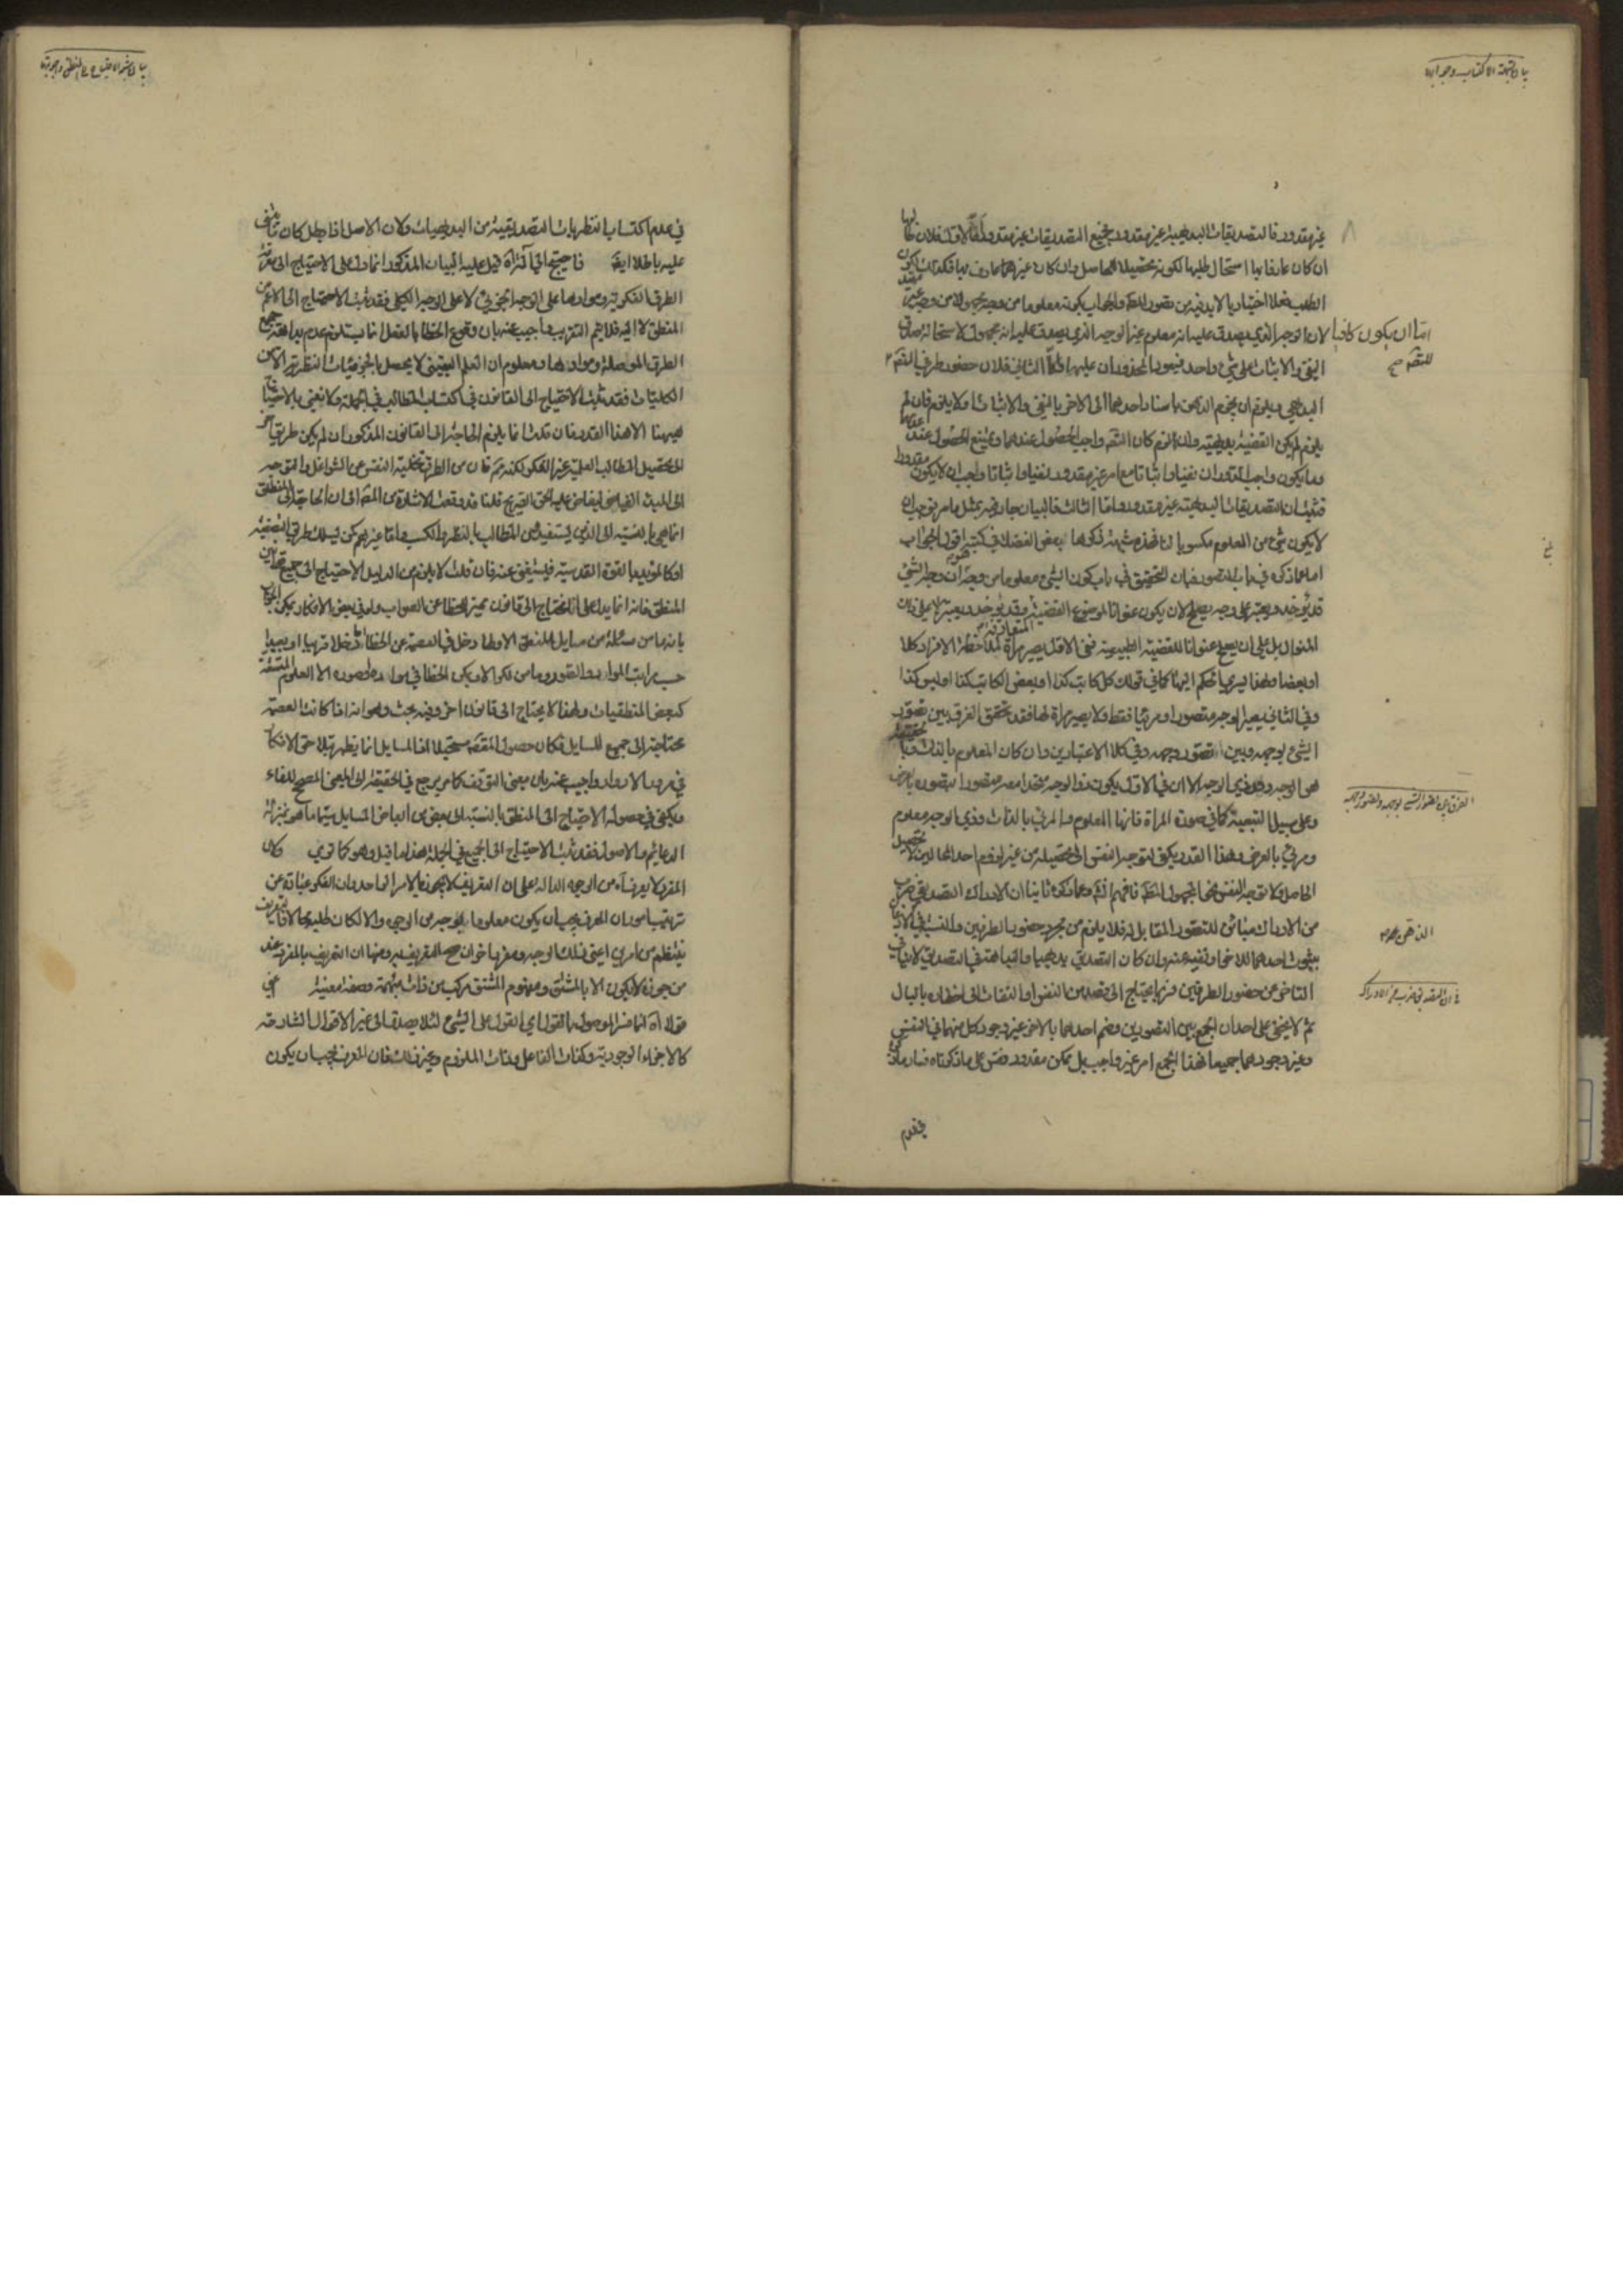 بيان شبهة الاكتساب وجوابه
غير مقدور فالتصديقات البديهية غير مقدور فجميع التصديقات غير مقدور اما الاول فلان طالبها
ان كان عارفا بها استحال طلبها لكونه تحصيلا للحاصل وان كان غير عارف بها فكذلك لكون
الطلب فعلا اختياريا لا بد فيه من تصور المط والجواب بكونه معلوما من وجه مجهولا من وجه
لان الوجه الذي يصدق عليه انه معلوم غير الوجه الذي يصدق عليه انه مجهول لاستحالة صدق
النفي والاثبات على شيء واحد فيعود المحذوران عليهما واما الثاني فلان حضور طرفي
اما ان يكون كافيا
البديهي ويلزم ان يجزم الذهن باسناد احدهما الى الاخر بالنفي والاثبات او لا يلزم فان لم
يلزم لم يكن القضية بديهية وان لزم كان التصديق واجب الحصول عندهما وممتنع الحصول عند عدمهما
وما يكون واجب الدوران نفيا واثباتا مع امر غير مقدور نفيا واثباتا وجب ان لا يكون مقدورا
فثبت ان التصديقات البديهية غير مقدور واما الثالث فالبيان جار فيه بمثل ما مر فوجب ان
لا يكون شيء من العلوم مكسوبا لنا فهذه شبهة ذكرها بعض الفضلاء في كتبه اقول الجواب
اما عما ذكره في باب التصور فبان التحقيق في باب كون الشيء معلوما من وجه هو ان وجه الشيء
قد يؤخذ ويعتبر على وجه يصلح لان يكون عنوانا لموضوع القضية المتعارفة وقد يؤخذ ويعتبر لا على ذلك
المنوال بل على ان يصلح عنوانا للقضية الطبيعية ففي الاول يصير مراة لملاحظة الافراد كلا
او بعضا ولهذا يسري الحكم اليها كما في قولك كل كاتب كذا او بعض الكاتب كذا او ليس كذا
وفي الثاني يصير الوجه متصورا ومرئيا فقط ولا يصير مراة لها فقد تحقق الفرق بين تصور
الشيء بوجهه وبين تصور وجهه وفي كلا الاعتبارين وان كان المعلوم بالذات حقيقة
هو الوجه دون ذي الوجه الا ان في الاول يكون ذو الوجه متحدا معه متصورا بتصوره بالعرض
الفرق بين تصور الشيء بوجهه وتصور وجهه
وعلى سبيل التبعية كما في صورة المراة فانها المعلوم والمرئي بالذات وذي الوجه معلوم
ومرئي بالعرض وهذا القدر يكفي لتوجه النفس الى تحصيله من غير لزوم احد المحالين لا تحصيل
الحاصل ولا توجه النفس نحو المجهول المطلق فافهم وعما ذكره ثانيا ان الادراك التصديقي ضرب
من الادراك مبائن للتصور المقابل له فلا يلزم من مجرد حضور الطرفين والنسبة في الاذهان
بثبوت احدهما للاخر او نفيه عنه وان كان التصديق بديهيا والبداهة في التصديق لا ينافي
التاخر عن حضور الطرفين فربما يحتاج الى قصد من النفس او التفات الى اخطاره بالبال
في ان التصديق ضرب من الادراك
ثم لا يخفى على احد ان الجمع بين التصورين وضم احدهما بالاخر غير وجود كل منهما في النفس
وغير وجودهما جميعا فهذا الجمع امر غير واجب بل ممكن مقدور فتبين على ما ذكرناه فساد ما ذكره
في عدم
بيان شبهة الاحتياج الى المنطق وجوابه
في عدم اكتساب النظريات التصديقية من البديهيات ولان الاصل اذا بطل كان ما يبتني
عليه باطلا ايضا فاحتيج الى آه قيل عليه البيان المذكور انما دل على الاحتياج الى معرفة
الطرق الفكرية وموادها على الوجه الجزئي لا على الوجه الكلي فقد ثبت الاحتياج الى الاعم من
المنطق لا اليه فلا يتم التقريب واجيب عنه بان وقوع الخطا بالفعل انما يستلزم عدم بداهة جميع
الطرق الموصلة وموادها ومعلوم ان العلم اليقيني لا يحصل بالجزئيات النظرية الا من
الكليات فقد ثبت الاحتياج الى القانون في اكتساب المطالب في الجملة ولا نعني بالاحتياج
ههنا الا هذا القدر فان قلت انما يلزم الحاجة الى القانون المذكور ان لم يكن طريق آخر
الى تحصيل المطالب العلمية غير الفكر لكنه ثم فان من الطرق تخلية النفس عن الشواغل والتوجه
الى المبدء الفياض ليفاض عليه الحق الصريح قلنا قد وقعت الاشارة من المص الى ان الحاجة الى المنطق
انما هي بالنسبة الى الذين يستفيدون المطالب بالنظر والكسب واما غيرهم كمن يسلك طريق التصفية
او كالمؤيد بالقوة القدسية فيستغني عنه فان قلت لا يلزم من الدليل الاحتياج الى جميع قوانين
المنطق فانه انما يدل على انا نحتاج الى قانون يميز الخطا عن الصواب ولو في بعض الافكار يمكن الجواب
بانه ما من مسئلة من مسايل المنطق الا ولها دخل في العصمة عن الخطا دخلا قريبا او بعيدا
حسب مراتب المواد والصور وما من فكر الا ويمكن الخطا في مواده او صوره الا العلوم المتسقة
كبعض المنطقيات ولهذا لا يحتاج الى قانون اخر وفيه بحث وهو انه اذا كانت العصمة
محتاجة الى جميع المسايل فكان حصول المقصد مستحيلا اذ المسايل انما يظهر بتلاحق الافكار
في مرور الادوار واجيب عنه بان معنى التوقف كما مر يرجع في الحقيقة الى المعنى المصحح للفاء
ويكفي في حصوله الاحتياج الى المنطق بالنسبة الى بعض من ابعاض المسايل سيما ما هو بمنزلة
الدعائم والاصول فقد ثبت الاحتياج الى الجميع في الجملة هذا ما قيل وهو كما ترى وكان
المفرد لا يعرف آه من الوجوه الدالة على ان التعريف لا يجوز بالامر الواحد وان الفكر عبارة عن
ترتيب امور ان المعرف يجب ان يكون معلوما بوجه من الوجوه والا لكان طلبه محالا فالتعريف
ينتظم من امرين اعني ذلك الوجه ومعرفا اخر ان صح التعريف به ومنها ان التعريف بالمفرد عند
من جوزه لا يكون الا بالمشتق ومفهوم المشتق مركب من ذات مبهمة وصفة معينة
قوله آه انما فسر الموصول بالقول اي القول على الشيء لئلا يصدق الى غير الاقوال الشارحة
كالاجزاء الوجودية وكذات الفاعل وذات الملزوم وغير ذلك فان المعرف يجب ان يكون